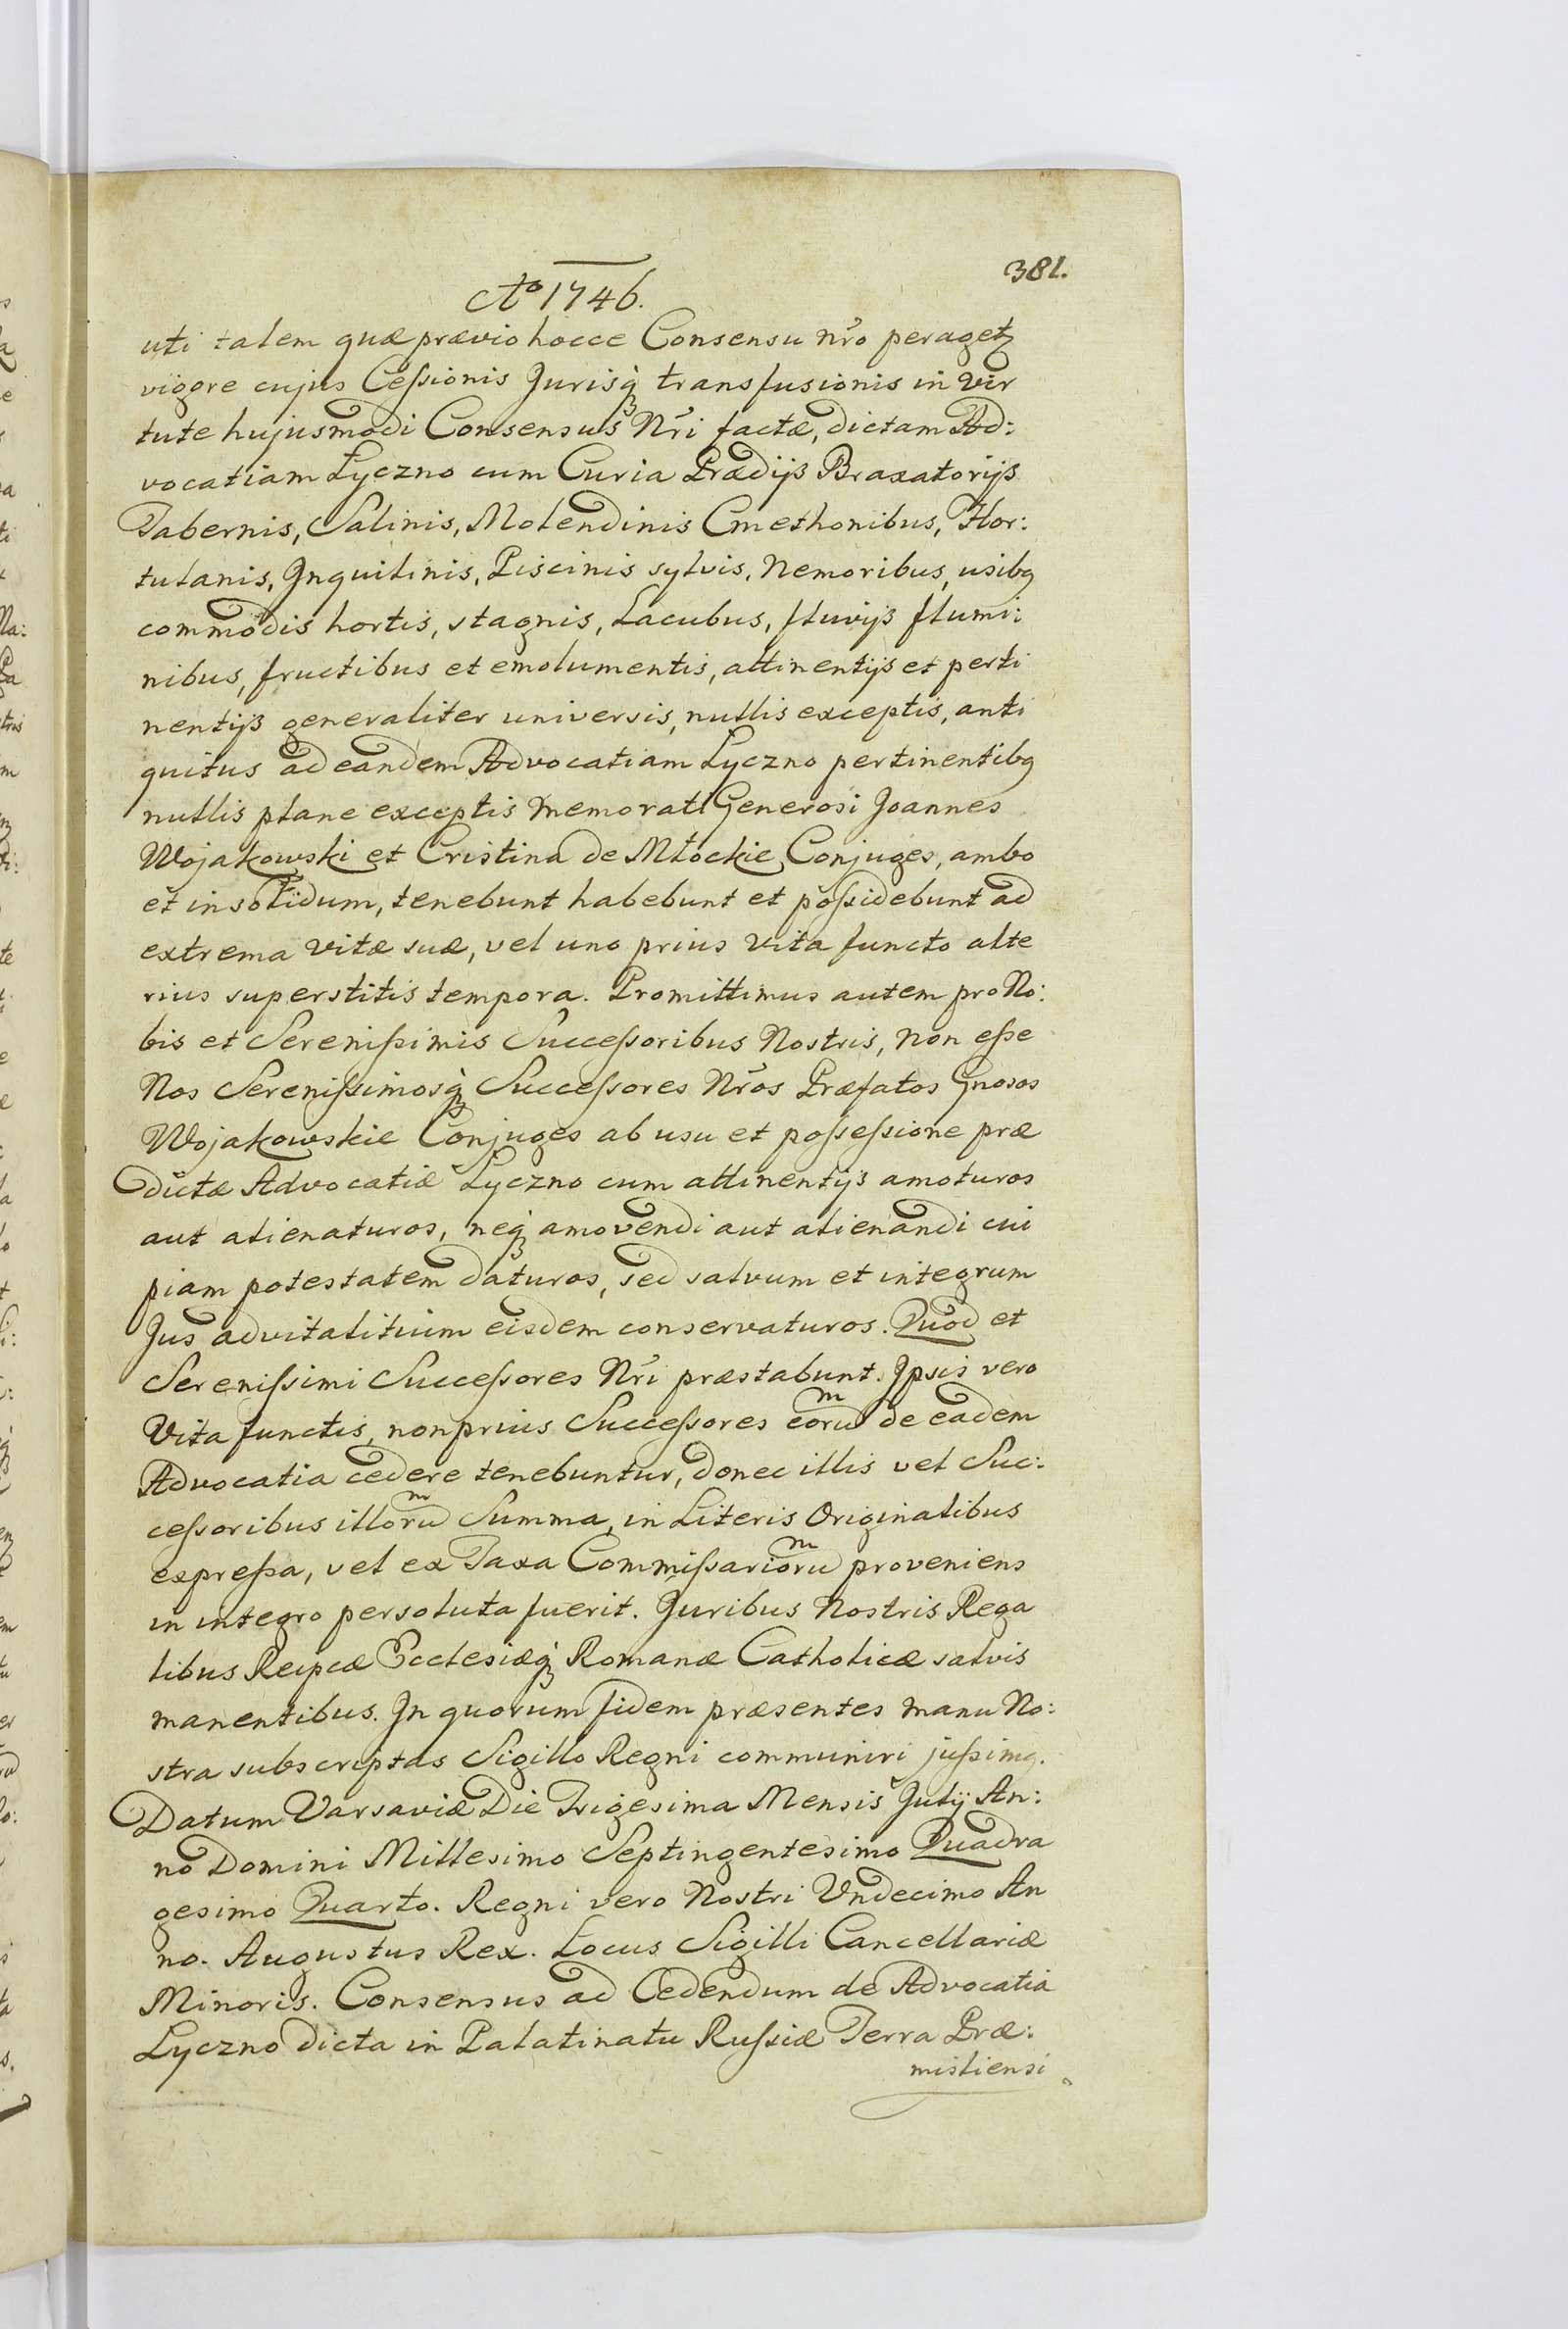 381.
Ao 1746.
uti talem quæ prævio hocce Consensu nr̃o peragetz
vigore cujus Cessionis Jurisq̃ transfusionis in vir
tute hujusmodi Consensus Nr̃i factæ, dictam Ad:
vocatiam Łyczno cum Curia Prædijs Braxatorijs
Tabernis, Salinis, Molendinis Cmethonibus, Hor:
tulanis, Inquilinis, Piscinis sylvis, Nemoribus, usibq
commodis hortis, stagnis, Lacubus, fluvijs flumi:
nibus, fructibus et emolumentis, attinentijs et perti
nentijs generaliter universis, nullis exceptis, anti
quitus ad eandem Advocatiam Lyczno pertinentibq
nullis plane exceptis memorati Generosi Joannes
Wojakowski et Cristina de Młockie Conjuges, ambo
et in solidum, tenebunt habebunt et possidebunt ad
extrema vitæ suæ, vel uno prius vita functo alte
rius superstitis tempora. Promittimus autem pro No:
bis et Serenissimis Successoribus Nostris, non esse
Nos Serenissimosq̃ Successores Nr̃os Præfatos Gnosos
Wojakowskie Conjuges ab usu et possessione præ
dictæ Advocatiæ Lyczno cum attinentijs amoturos
aut alienaturos, neq̃ amovendi aut alienandi cui
piam potestatem daturos, sed salvum et integrum
Jus advitalitium eisdem conservaturos. Quod et
Serenissimi Successores Nr̃i præstabunt. Ipsis vero
Vita functis, non prius Successores eorum de eadem
Advocatia cedere tenebuntur, donec illis vel Suc:
cessoribus illorum Summa, in Literis Originalibus
expressa, vel ex Taxa Commissariorum proveniens
in integro persoluta fuerit. Juribus Nostris Rega
libus Reipcæ Ecclesiæq̃ Romanæ Catholicæ salvis
manentibus. In quorum fidem præsentes manu No:
stra subscriptas Sigillo Regni communiri jussimq.
Datum Varsaviæ Die Trigesima Mensis Julij An:
no Domini Millesimo Septingentesimo Quadra
gesimo Quarto. Regni vero Nostri Undecimo An
no. Augustus Rex. Locus Sigilli Cancellariæ
Minoris. Consensus ad Cedendum de Advocatia
Lyczno dicta in Palatinatu Russiæ Terra Præ:
misliensi